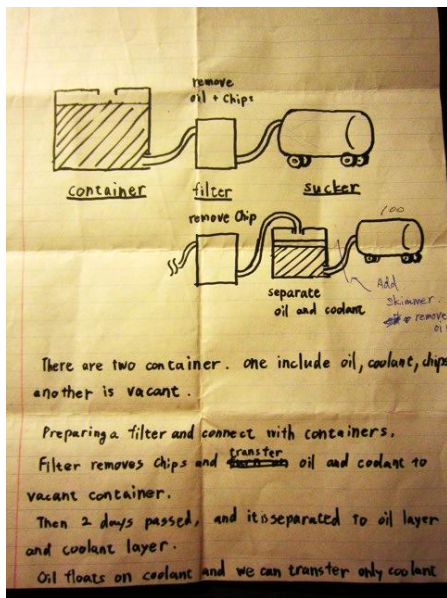 remove
oil + chips
container filter sucker
remove chip
100
separate
oil and coolant
Add
skimmer.
remove
There are two container. one include oil, coolant, chips
another is vacant.
Preparing a filter and connect with containers.
transfer
Filter removes chips and oil and coolant to
vacant container.
Then 2 days passed, and it is separated to oil layer
and coolant layer.
Oil floats on coolant and we can transfer only coolant